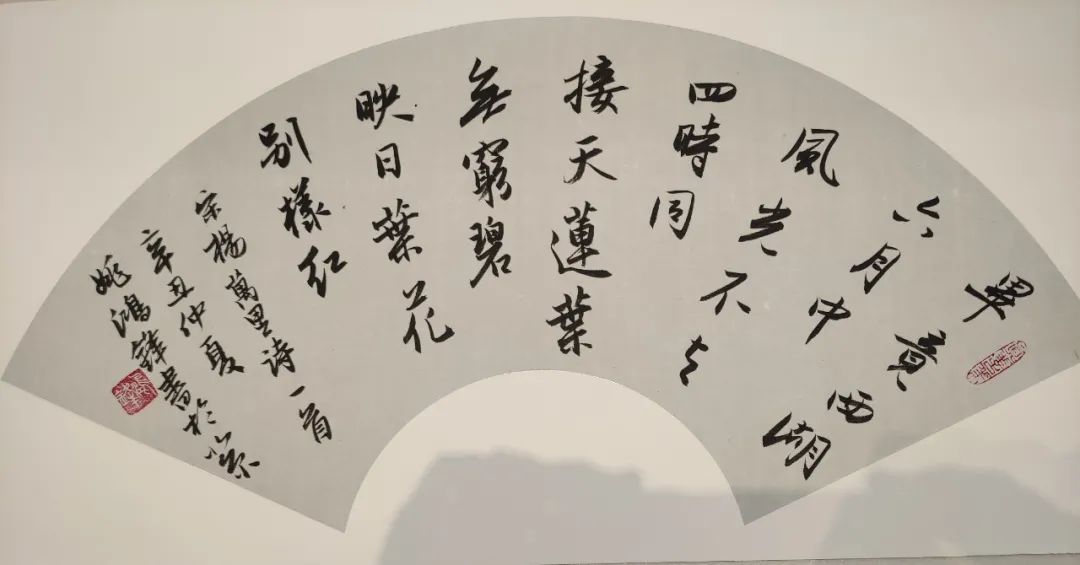 畢竟西湖
六月中
風光不与
四時同
接天蓮葉
無窮碧
映日葉花
别樣红
宋楊萬里诗一首
辛丑仲夏
姚鴻鋒書於京